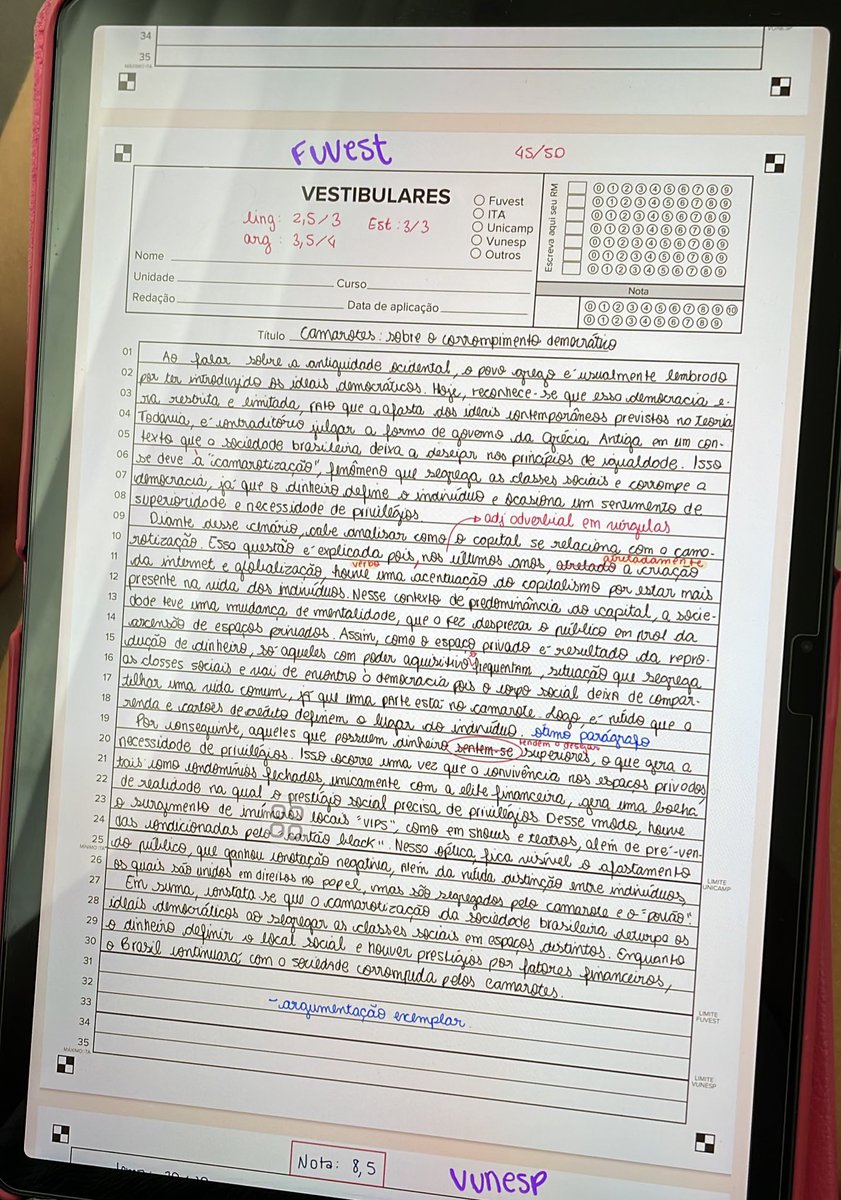 34
35
MÁXIMO ITA
VUNESP
FUVEST
45/50
VESTIBULARES
ling: 2,5/3
Est: 3/3
arg: 3,5/4
Fuvest
ITA
Unicamp
Vunesp
Outros
Escreva aqui seu RM
0 1 2 3 4 5 6 7 8 9
0 1 2 3 4 5 6 7 8 9
0 1 2 3 4 5 6 7 8 9
0 1 2 3 4 5 6 7 8 9
0 1 2 3 4 5 6 7 8 9
0 1 2 3 4 5 6 7 8 9
0 1 2 3 4 5 6 7 8 9
Nome
Unidade
Curso
Redação
Data de aplicação
Nota
0 1 2 3 4 5 6 7 8 9 10
0 1 2 3 4 5 6 7 8 9
Título Camarotes: sobre o corrompimento democrático
01 Ao falar sobre a antiguidade ocidental, o povo grego é usualmente lembrado
02 por ter introduzido os ideais democráticos. Hoje, reconhece-se que essa democracia e-
03 ra restrita e limitada, fato que a afasta dos ideais contemporâneos previstos na teoria
04 Todavia, é contraditório julgar a forma de governo da Grécia Antiga em um con-
05 texto que a sociedade brasileira, deixa a desejar nos princípios de igualdade. Isso
06 se deve à "camarotização", fenômeno que segrega as classes sociais e corrompe a
07 democracia, já que o dinheiro define o indivíduo e ocasiona um sentimento de
08 superioridade e necessidade de privilégios.
adj adverbial em vírgulas
09 Diante desse cenário, cabe analisar como o capital se relaciona com a cama-
10 rotização. Essa questão é explicada pois, nos últimos anos, atrelado à criação
atreladamente
verbo
11 da internet e globalização, houve uma acentuação do capitalismo por estar mais
12 presente na vida dos indivíduos. Nesse contexto de predominância do capital, a socie-
13 dade teve uma mudança de mentalidade, que o fez desprezar o público em prol da
14 ascensão de espaços privados. Assim, como o espaço privado é resultado da repro-
15 dução de dinheiro, só aqueles com poder aquisitivo frequentam, situação que segrega
16 as classes sociais e vai de encontro à democracia pois o corpo social deixa de compar-
17 tilhar uma vida comum, já que uma parte está no camarote. Logo, é nítido que a
18 renda e cartões de crédito definem o lugar do indivíduo. ótimo parágrafo
19 Por conseguinte, aqueles que possuem dinheiro sentem-se superiores, o que gera a
20 necessidade de privilégios. Isso ocorre uma vez que a convivência nos espaços privados,
21 tais como condomínios fechados, unicamente com a elite financeira, gera uma bolha
22 de realidade na qual o prestígio social precisa de privilégios. Desse modo, houve
23 o surgimento de inúmeros locais "VIPS", como em shows e teatros, além de pré-ven-
24 das condicionadas pelo "cartão black". Nessa óptica, fica visível o afastamento
25 do público, que ganhou conotação negativa, além da nítida distinção entre indivíduos,
MÍNIMO ITA
26 os quais são unidos em direitos no papel, mas são segregados pelo camarote e o "povão".
LIMITE UNICAMP
27 Em suma, constata-se que a camarotização da sociedade brasileira deturpa os
28 ideais democráticos ao segregar as classes sociais em espaços distintos. Enquanto
29 o dinheiro definir o local social e houver prestígios por fatores financeiros,
30 o Brasil continuará com a sociedade corrompida pelos camarotes.
31
LIMITE FUVEST
32
- argumentação exemplar.
33
34
LIMITE VUNESP
35
MÁXIMO ITA
Nota: 8,5
VUNESP